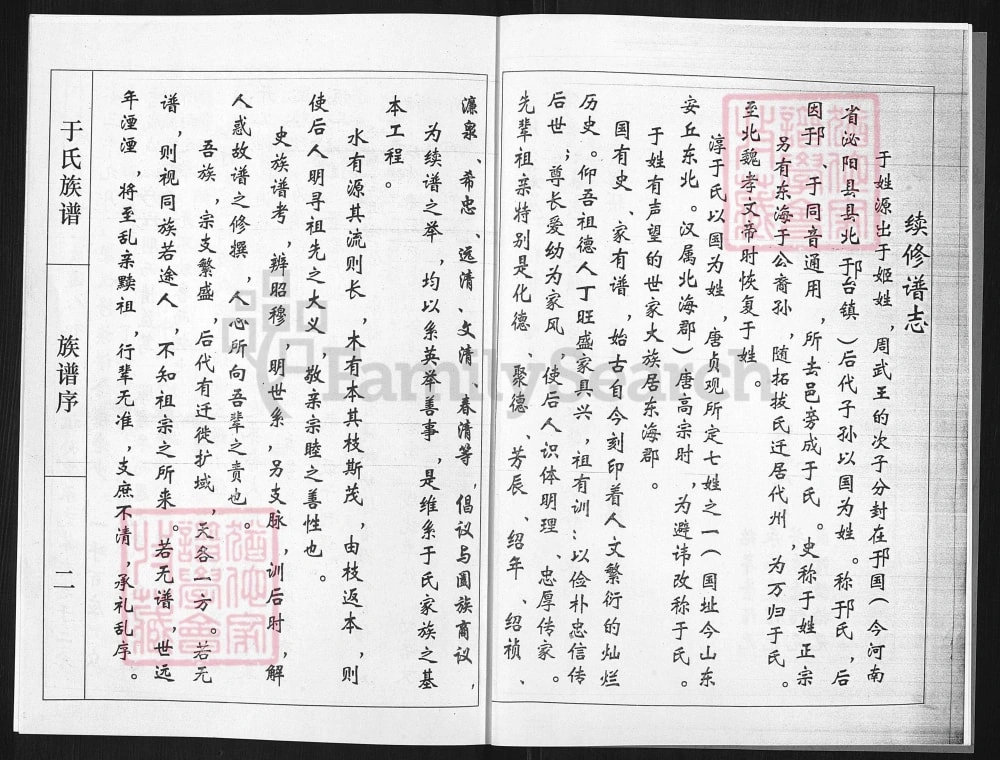 续修谱志
于姓源出于姬姓，周武王的次子分封在邘国（今河南
省沁阳县县北邘台镇）后代子孙以国为姓。称邘氏，后
因邘、于同音通用，所去邑旁成于氏。史称于姓正宗
另有东海于公裔孙，随拓拔氏迁居代州，为万归于氏
至北魏孝文帝时恢复于姓。
淳于氏以国为姓，唐贞观所定七姓之一（国址今山东
安丘东北。汉属北海郡）唐高宗时，为避讳改称于氏。
于姓有声望的世家大族居东海郡。
国有史、家有谱，始古自今刻印着人文繁衍的灿烂
历史。仰吾祖德人丁旺盛家具兴，祖有训：以俭朴忠信传
后世；尊长爱幼为家风，使后人识体明理、忠厚传家。
先辈祖亲特别是化德、聚德、芳辰、绍年、绍祯、
濂泉、希忠、远清、文清、春清等，倡议与圆族商议，
为续谱之举，均以系英举善事，是维系于氏家族之基
本工程。
水有源其流则长，木有本其枝斯茂，由枝返本，则
使后人明寻祖先之大义，敬亲宗睦之善性也。
史族谱考，辨昭穆，明世系，另支脉，训后时，解
人惑故谱之修撰，人心所向吾辈之责也。
吾族，宗支繁盛，后代有迁徙扩域，天各一方。若无
谱，则视同族若途人，不知祖宗之所来。若无谱，世远
年湮湮，将至乱亲黩祖，行辈无准，支庶不清，承礼乱序。
于氏族谱
族谱序
二
FamilySearch